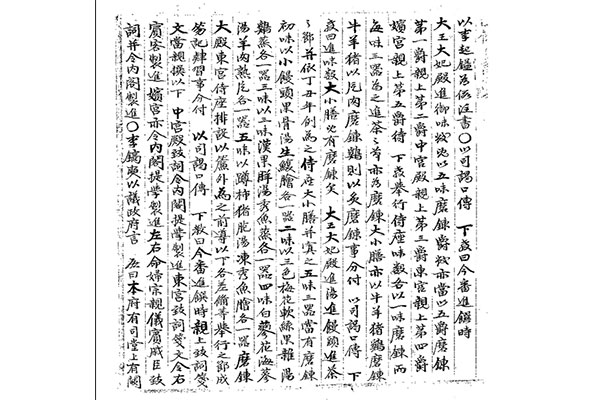 以事起鎰爲假注書〇以司謁口傳 下敎曰今番進饌時
大王大妃殿進御味數以五味磨鍊爵數亦當以五爵磨鍊
第一爵親上第二爵中宮殿親上第三爵東宮親上第四爵
嬪宮親上第五爵待 下敎擧行侍座味數各以一味磨鍊而
每味三器爲之進茶之節亦爲磨鍊大小膳亦以牛羊猪鷄磨鍊
牛羊猪以片肉磨鍊鷄則以炙磨鍊事分付 以司謁口傳 下
敎曰進味數大小膳有磨鍊矣 大王大妃殿進湯進饅頭進茶
之節幷依丁丑年例爲之侍座大小膳幷寘之五味三器當有磨鍊
初味以小饅頭果骨湯生鰒膾各一器二味以三色梅花軟絲果雜湯
鷄蒸各一器三味以三漢果胖湯秀魚蒸各一器四味白蓼花海蔘
湯羊肉熟片各一器五味以蹲柿猪胞湯凍秀魚膾各一器磨鍊
大殿東宮侍座排設以簾外爲之前尊以下各差備等擧行之節成
笏記肄習事分付 以司謁口傳 下敎曰今番進饌時親上致詞箋
文當親撰以下 中宮殿致詞令內閣提學製進東宮致詞箋文令右
賓客製進 嬪宮亦令內閣提學製進左右命婦宗親儀賓戚臣致
詞幷令內閣製進〇李鎬奭以議政府言 啓曰本府有司堂上有闕